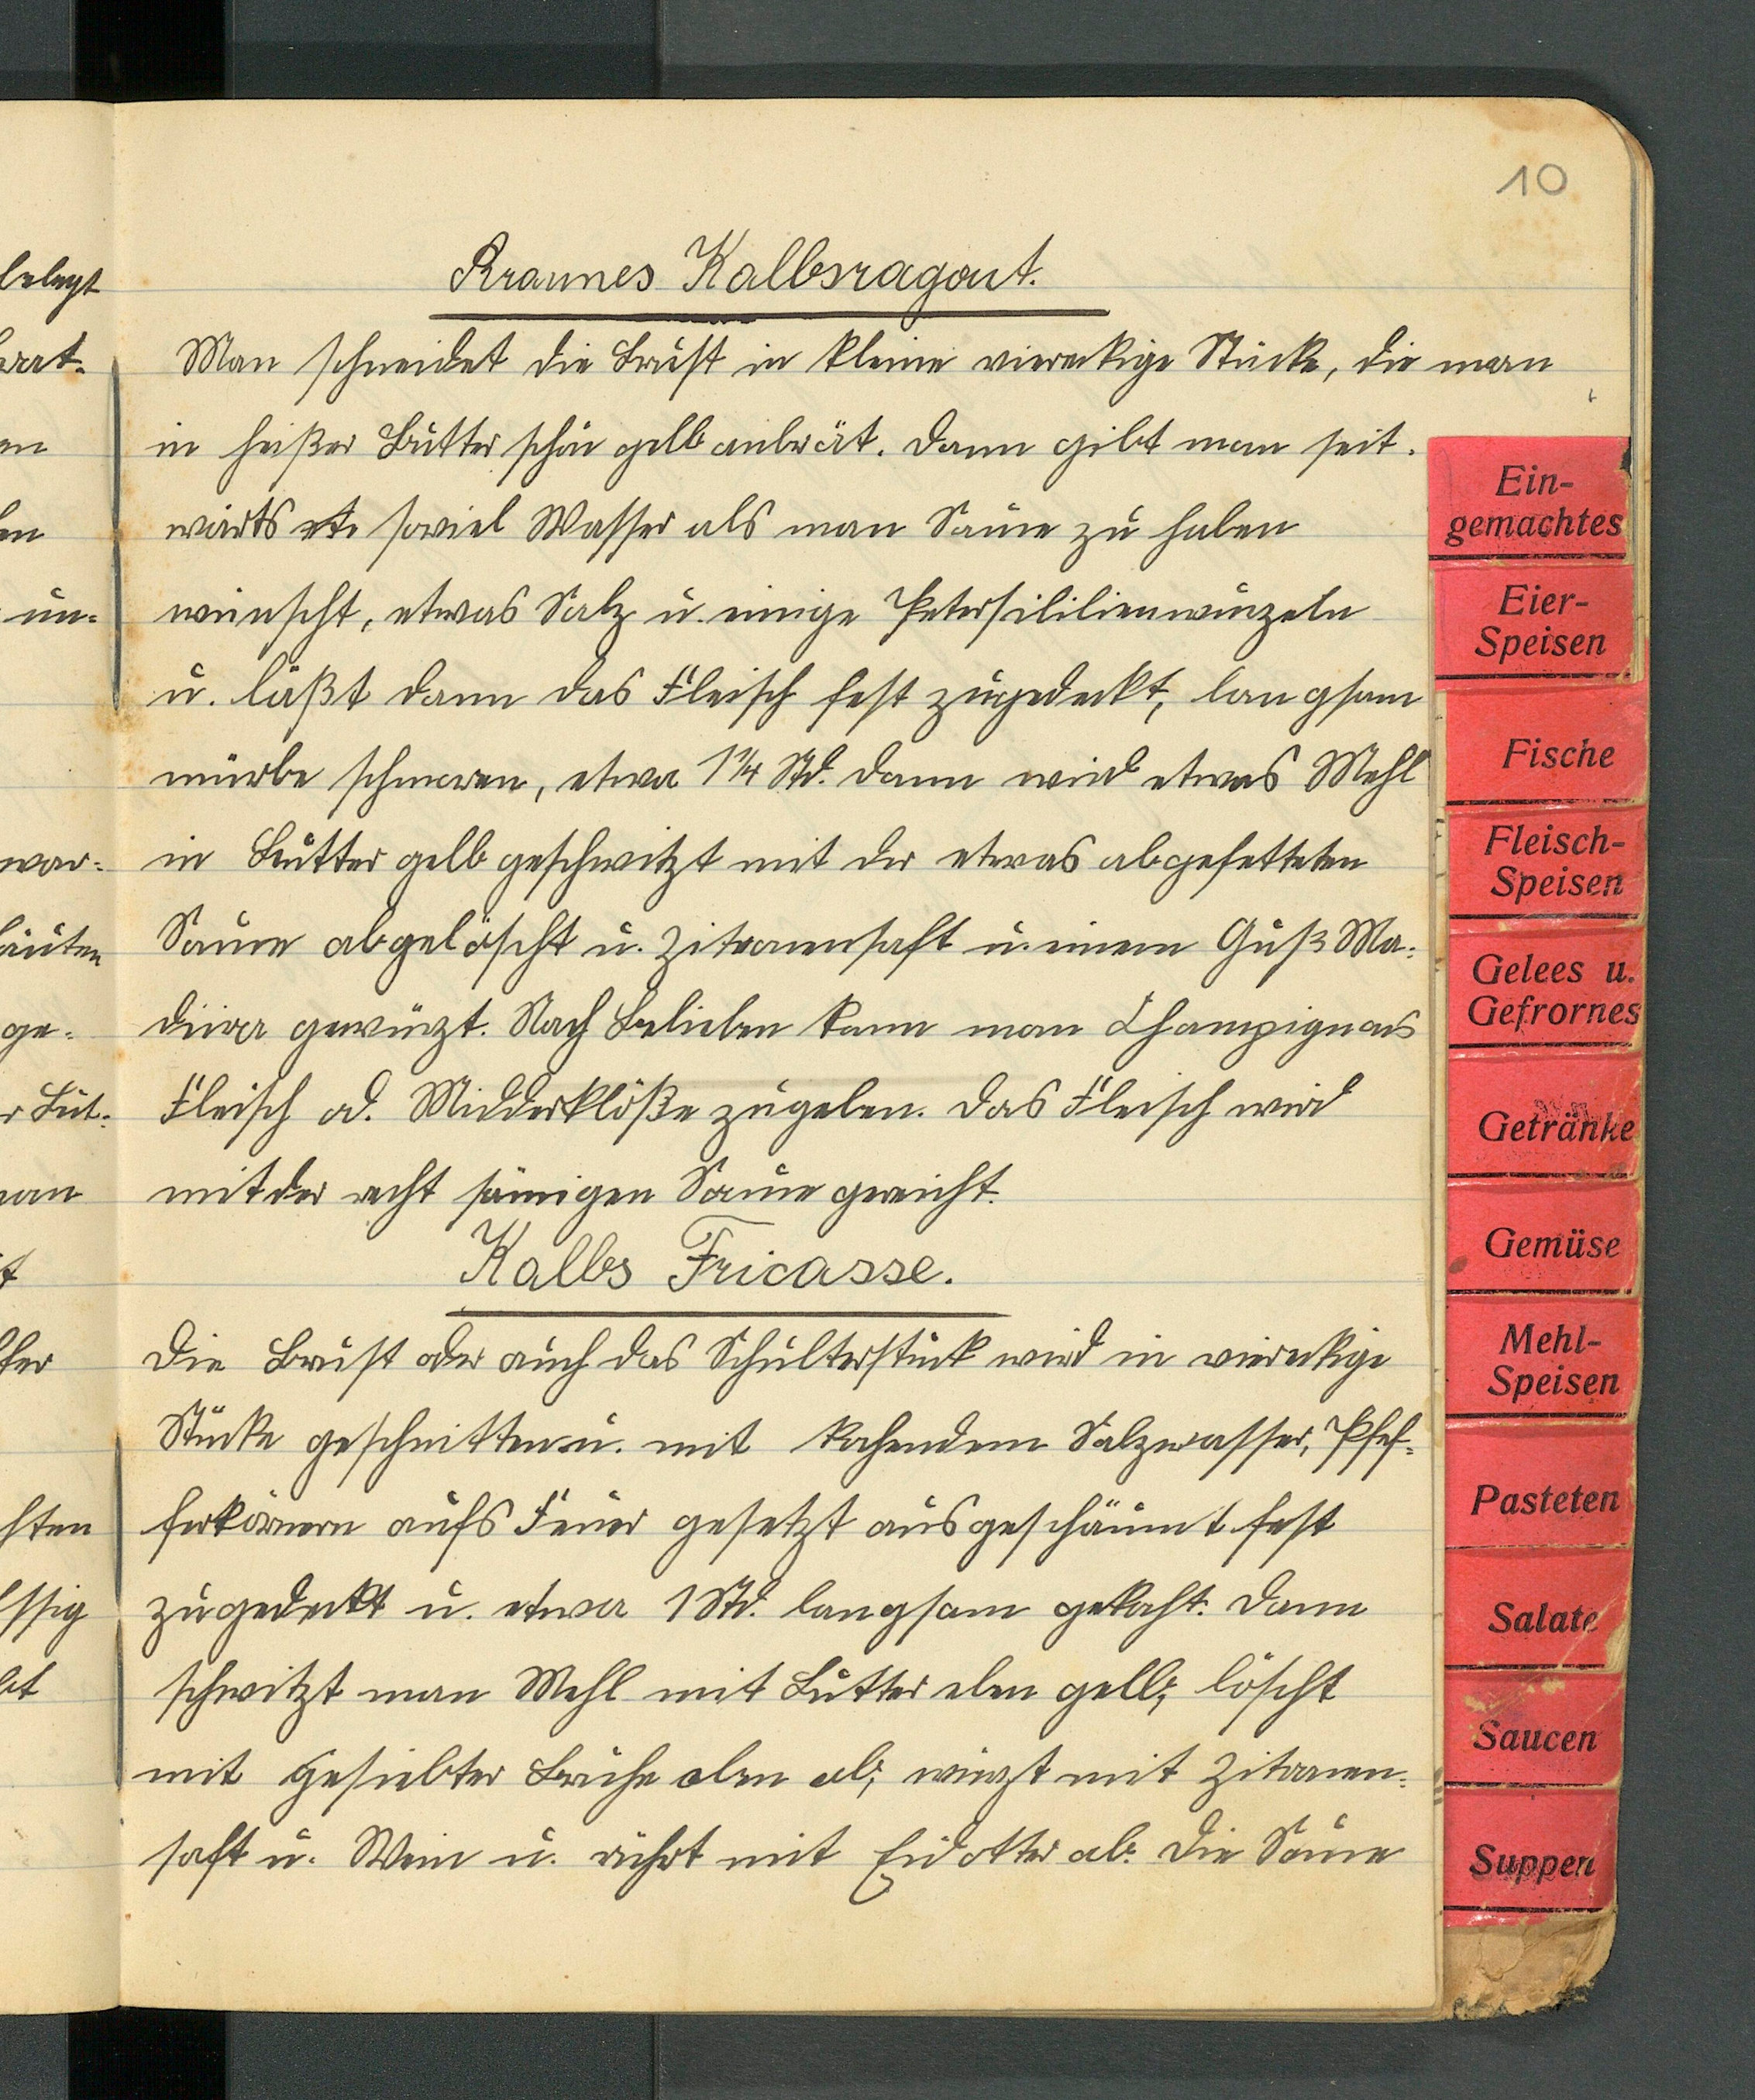 10
belegt
Braunes Kalbsragout.
brat-
Man schneidet die Brust in kleine viereckige Stücke, die man
en
in heißer Butter schön gelb anbrät. Dann gibt man seit-
en
wärts soviel Wasser als man Sauce zu haben
un-
wünscht, etwas Salz u. einige Petersililienwurzeln
u. läßt dann das Fleisch fest zugedeckt, langsam
mürbe schmoren, etwa 1¼ Std. Dann wird etwas Mehl
war-
in Butter gelb geschwitzt mit der etwas abgefetteten
häuten
Sauce abgelöscht u. Zitronensaft u. einem Guß Ma-
ge-
deira gewürzt. Nach Belieben kann man Champignons
r But-
Fleisch od. Midderklöße zugeben. Das Fleisch wird
man
mit der recht sämigen Sauce gereicht.
Kalbs Fricasse.
Die Brust oder auch das Schulterstück wird in viereckige
Stücke geschnitten u. mit kochendem Salzwasser, Pfef-
hten
ferkörnern aufs Feuer gesetzt ausgeschäumt fest
ssig
zugedeckt u. etwa 1 Std. langsam gekocht. Dann
schwitzt man Mehl mit Butter eben gelb, löscht
mit gesiebter Brühe eben ab, würzt mit Zitronen-
saft u. Wein u. rührt mit Eidotter ab. Die Sauce
Ein-
gemachtes
Eier-
Speisen
Fische
Fleisch-
Speisen
Gelees u.
Gefrornes
Getränke
Gemüse
Mehl-
Speisen
Pasteten
Salate
Saucen
Suppen